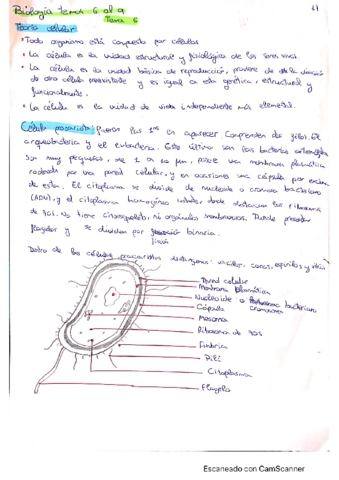 Biología temas 6 al 9
Tema 6
Teoría celular
• Todo organismo está compuesto por células
• La célula es la unidad estructural y fisiológica de los seres vivos.
• La célula es la unidad básica de reproducción, proviene de de la división
de otra célula preexistente y es igual a esta genética, estructural y
funcionalmente.
• La célula es la unidad de vida independiente más elemental.
Célula procariota: fueron las 1ᵃˢ en aparecer comprenden 2 filos. El
arqueobacteria y el eubacteria. Este último son las bacterias
son muy pequeñas, de 1 a 10 µm, posee una membrana plasmática
rodeada por una pared celular, y en ocasiones una cápsula por encima
de esta. El citoplasma se divide de nucleoide o cromosoma bacteriano
(ADN), y el citoplasma homogéneo celular, donde destacan los ribosomas
de 70S. No tiene citoesqueleto, ni orgánulos membranosos. Puede presentar
flagelos y se dividen por binaria.
fisión
Dentro de las células procariotas distinguimos: bacilos, cocos, espirilos y vibrio
Pared celular
Membrana plasmática
Nucleoide o cromosoma bacteriano
Cápsula
Mesosoma
Ribosoma de 70S
Fimbria
Pili
Citoplasma
Flagelo
Escaneado con CamScanner